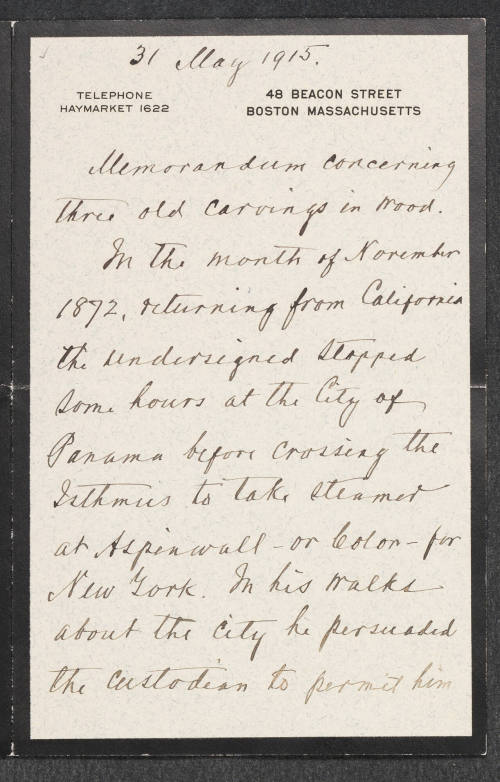 31 May 1915.
TELEPHONE
HAYMARKET 1622
48 BEACON STREET
BOSTON MASSACHUSETTS
Memorandum concerning
three old carvings in wood.
In the month of November
1872, returning from California
the undersigned stopped
some hours at the City of
Panama before crossing the
Isthmus to take steamer
at Aspinwall - or Colon - for
New York. In his walks
about the city he persuaded
the custodian to permit him